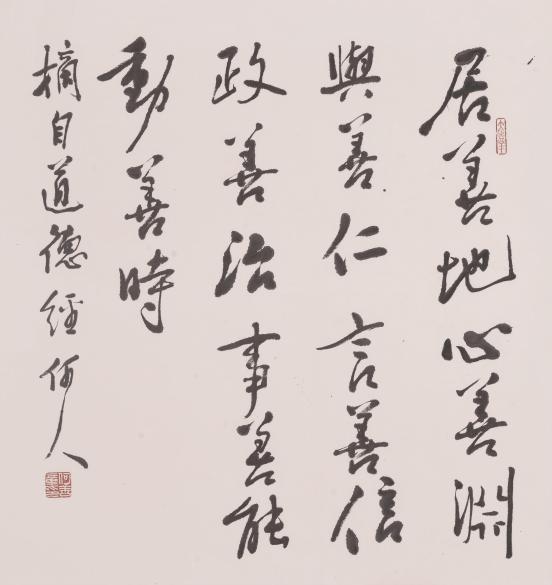 居善地心善淵
與善仁言善信
政善治事善能
動善時
摘自道德經何人